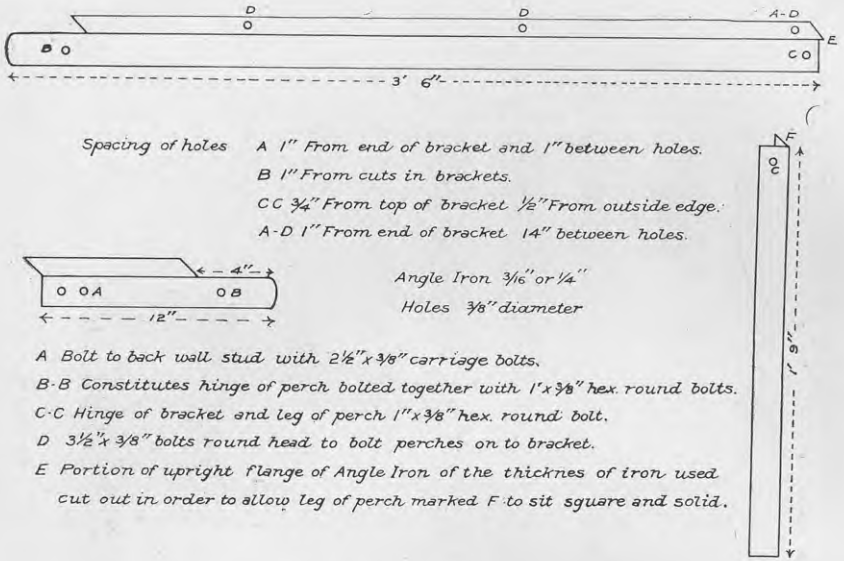 D D A-D
E
B C
3' 6"
F
C
Spacing of holes A 1" From end of bracket and 1" between holes.
B 1" From cuts in brackets.
CC ¾" From top of bracket ½" From outside edge.
A-D 1" From end of bracket 14" between holes.
4"
A B
12"
Angle Iron 3/16" or ¼"
Holes ⅜" diameter
1' 9"
A Bolt to back wall stud with 2½" x ⅜" carriage bolts.
B-B Constitutes hinge of perch bolted together with 1' x ⅜" hex. round bolts.
C-C Hinge of bracket and leg of perch 1" x ⅜" hex. round bolt.
D 3½" x ⅜" bolts round head to bolt perches on to bracket.
E Portion of upright flange of Angle Iron of the thicknes of iron used
cut out in order to allow leg of perch marked F to sit square and solid.